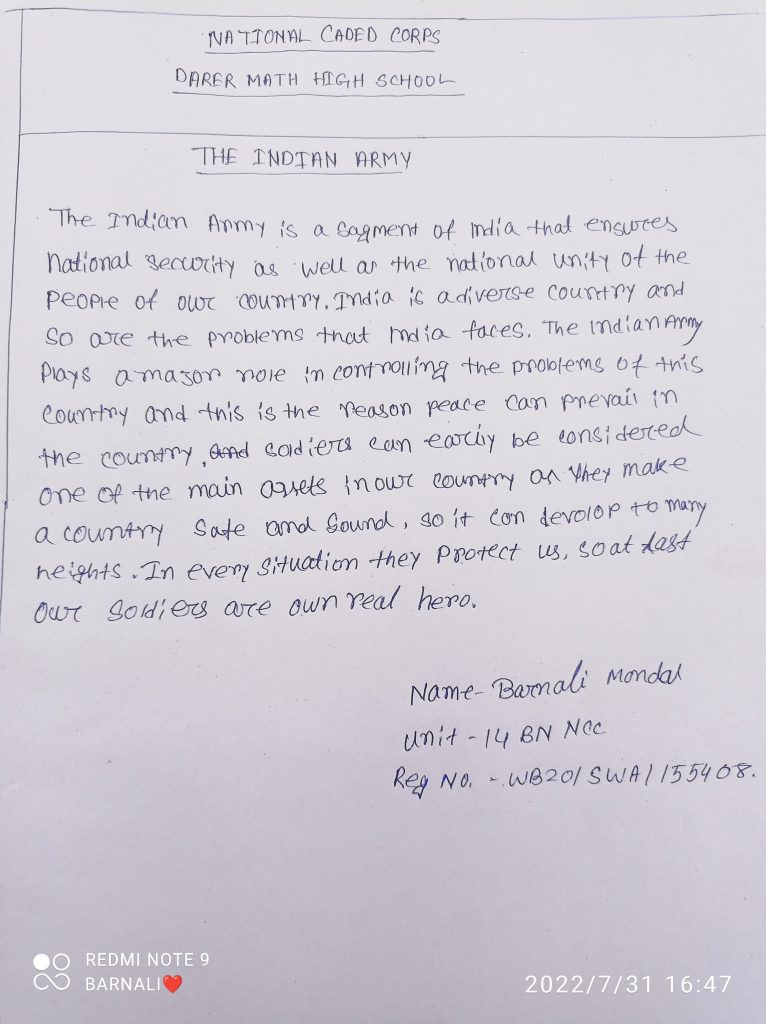 NATIONAL CADED CORPS
DARER MATH HIGH SCHOOL
THE INDIAN ARMY
The Indian Army is a sagment of India that ensures
National security as well as the national unity of the
People of our country. India is a diverse country and
so are the problems that India faces. The Indian Army
Plays a mazor role in controlling the problems of this
Country and this is the reason peace can prevail in
the country, and soldiers can earily be considered
one of the main assets in our country as they make
a country Safe and Sound, so it can devolop to many
heights. In every situation they Protect us, so at last
Our Soldiers are own real hero.
Name- Barnali Mondal
Unit - 14 BN NCC
Reg No. - WB20/SWA/155408.
REDMI NOTE 9
BARNALI❤️
2022/7/31 16:47